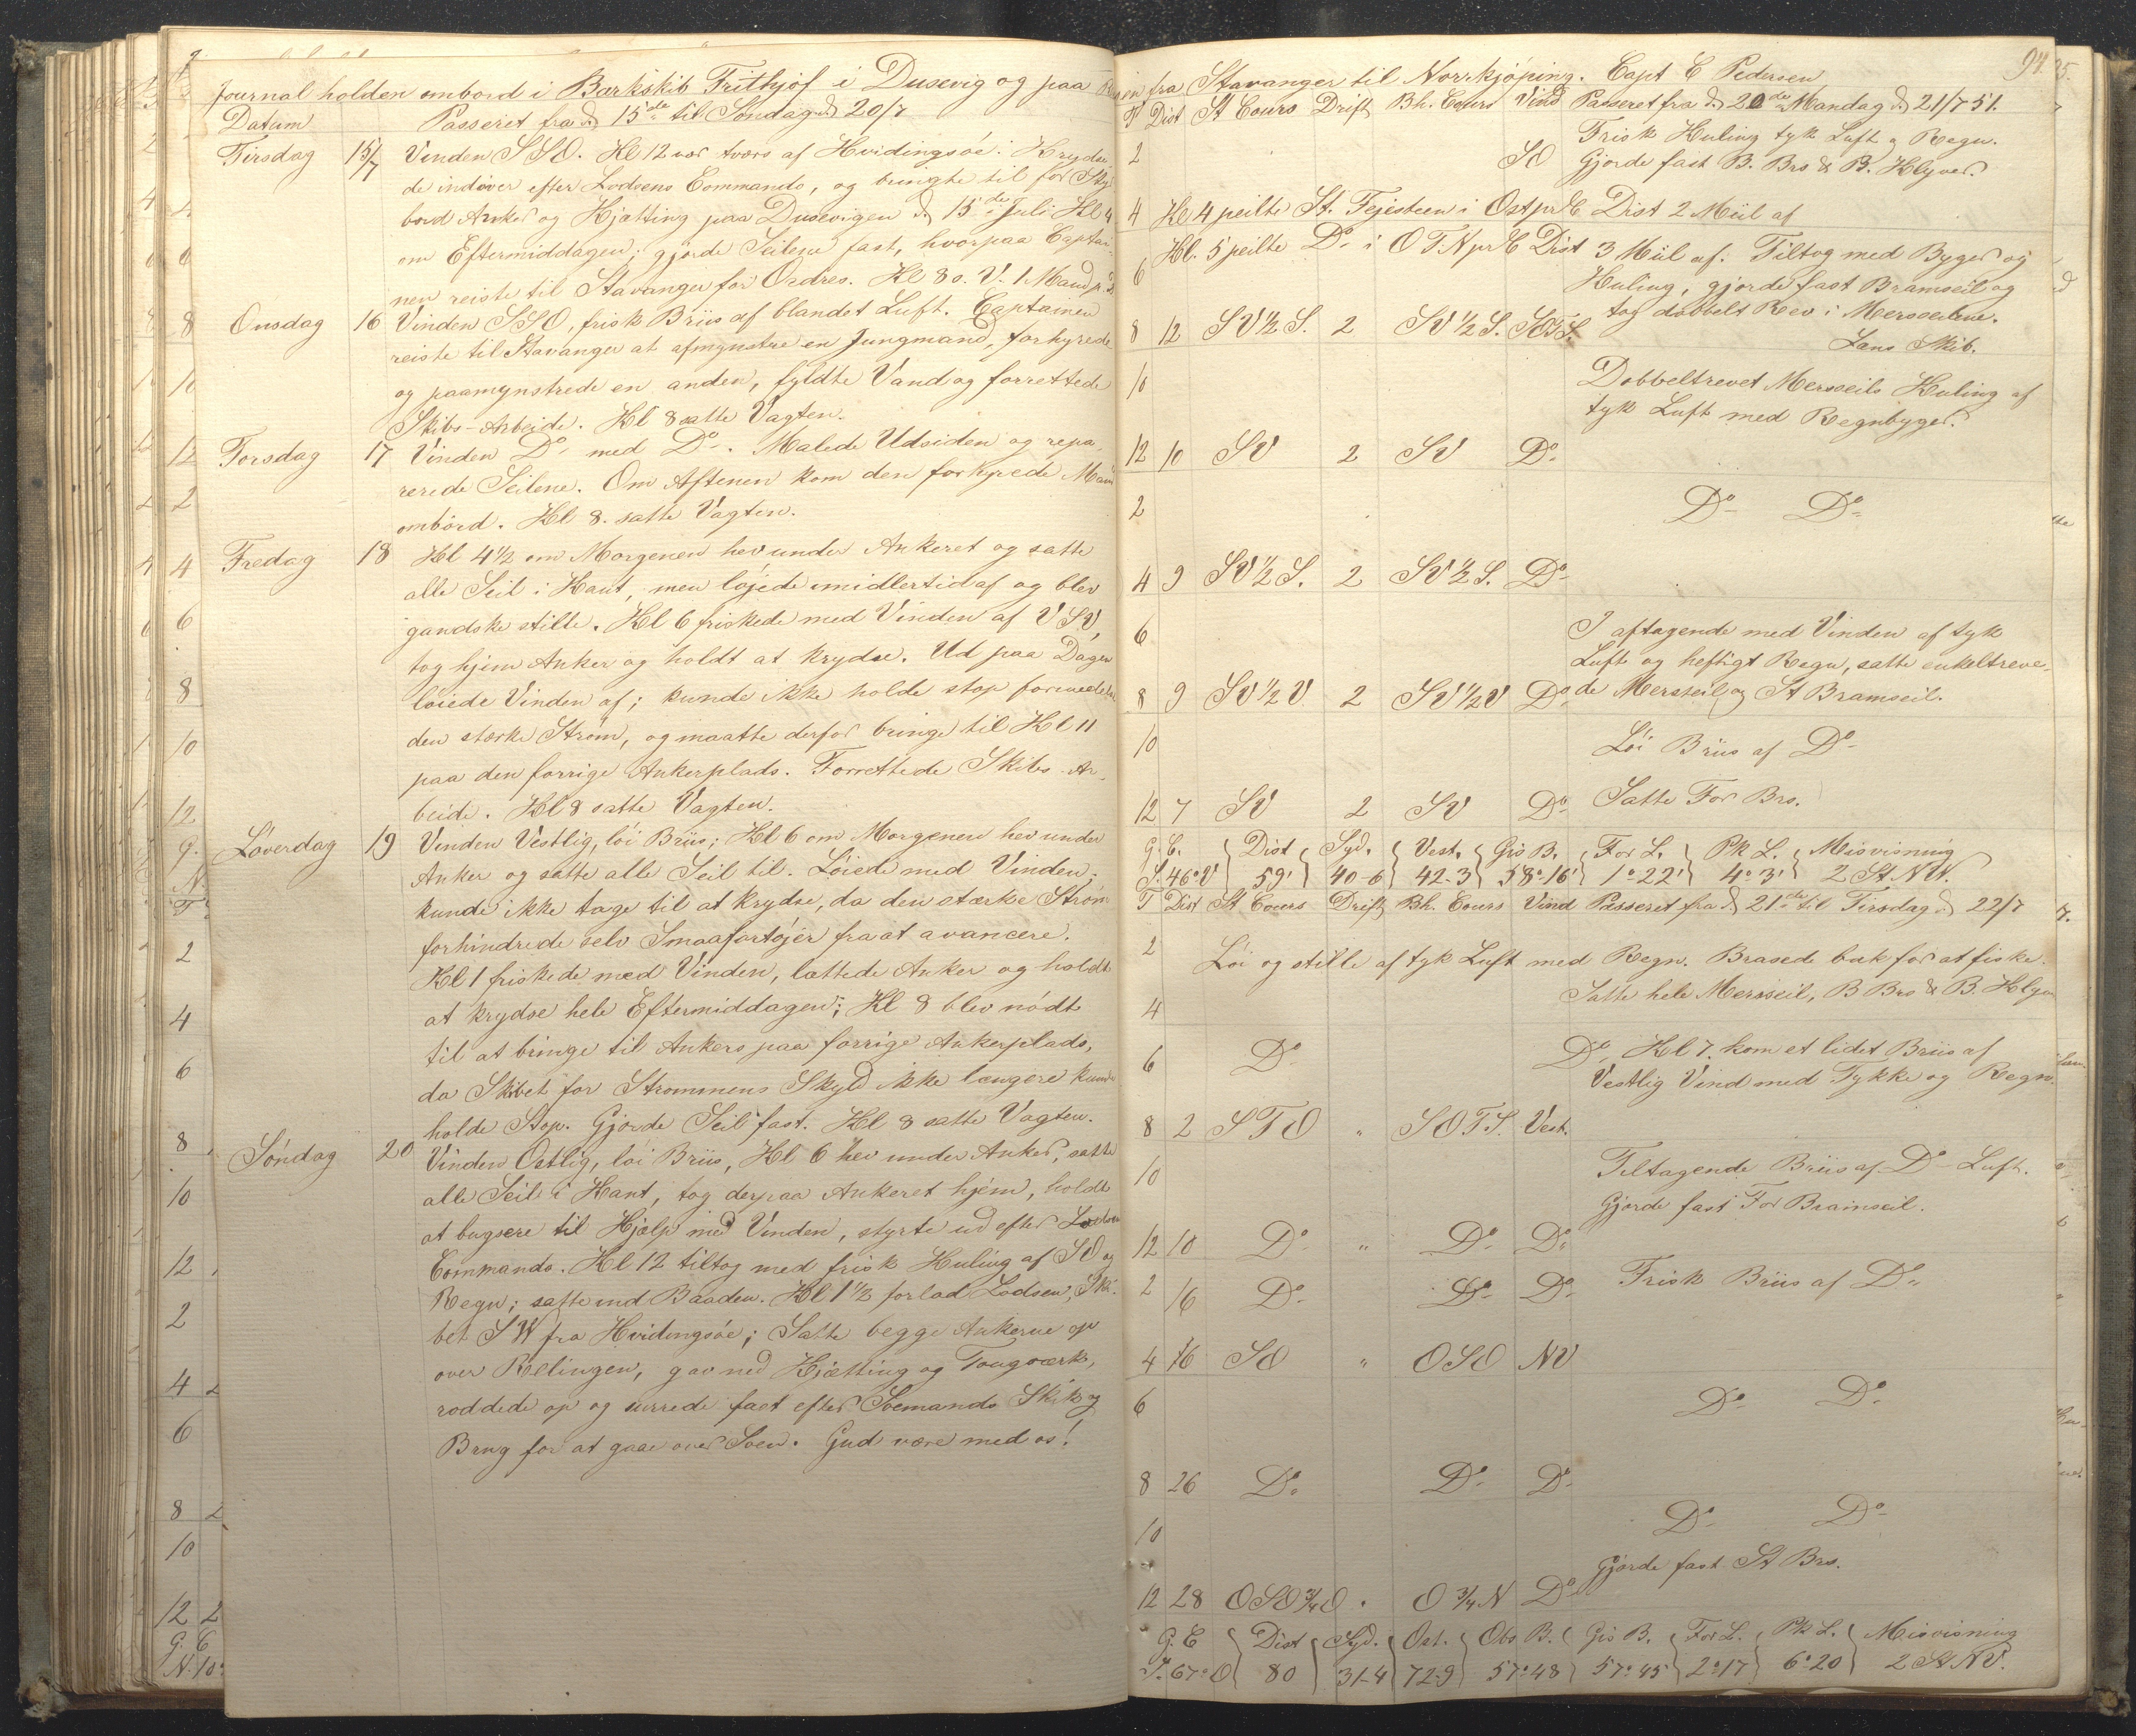 Journal holden ombord i Barkskib Frithjof i Dusevig og paa
Datum Passeret fra d. 15de til Søndag d. 20/7
Tirsdag 15/7 Vinden SSO. Kl 12 var tværs af Hvidingsöe: Krydse-
de indover efter Lodsens Commando, og bringte til for Sty
bord Anker og Hjætting paa Dusevigen d. 15de Juli Kl 4
om Eftermiddagen; gjorde Seilene fast, hvorpaa Captai-
nen reiste til Stavanger for Ordres. Kl 8 s. V. 1 Mand p. d.
Onsdag 16 Vinden SSO, frisk Briis af blandet Luft. Captainen
reiste til Stavanger at afmynstre en Jungmand, forhyrede
og paamynstrede en anden, fyldte Vand og forrettede
Skibs-Arbeide. Kl 8 satte Vagten.
Torsdag 17 Vinden Do med Do. Malede Udsiden og repa-
rerede Seilene. Om Aftenen kom den forhyrede Man
ombord. Kl 8. satte Vagten.
Fredag 18 Kl 4½ om Morgenen hev under Ankeret og satte
alle Seil i Kant, men løjede imidlertid af og blev
gandske stille. Kl 6 friskede med Vinden af VSV,
tog hjem Anker og holdt at krydse. Ud paa Dagen
løiede Vinden af; kunde ikke holde stop formedelst
den stærke Strøm, og maatte derfor bringe til Kl 11
paa den forrige Ankerplads. Forrettede Skibs-Ar-
beide. Kl 8 satte Vagten.
Løverdag 19 Vinden Vestlig, løi Briis; Kl 6 om Morgenen hev under
Anker og satte alle Seil til. Løiede med Vinden;
kunde ikke tage til at krydse, da den stærke Strøm
forhindrede selv Smaafartøjer fra at avancere.
Kl 1 friskede med Vinden, lættede Anker og holdt
at krydse hele Eftermiddagen; Kl 8 blev nødt
til at bringe til Ankers paa forrige Ankerplads,
da Skibet for Strømmens Skyld ikke længere kunde
holde Stop. Gjorde Seil fast. Kl 8 satte Vagten.
Søndag 20 Vinden Ostlig, løi Briis, Kl 6 hev under Anker, satte
alle Seil i Kant, tog derpaa Ankeret hjem, holdt
at bugsere til Hjælp med Vinden, styrte ud efter Lodsens
Commando. Kl 12 tiltog med frisk Kuling af SO og
Regn; satte ind Baaden. Kl 1½ forlod Lodsen, Ski-
bet SW fra Hvidingsöe; Satte begge Ankerne op
over Rælingen, gav ned Hjætting og Tougværk,
roddede op og surrede fast efter Søemands Skik og
Brug for at gaae over Søen. Gud være med os!
94.
fra Stavanger til Norrkjøping. Capt E Pedersen
T Dist St Cours Drift Bh. Cours Vind Passeret fra d. 20de Mandag d. 21/7 51.
Frisk Kuling tyk Luft og Regn.
2 SO Gjorde fast B. Brs & B. Klyver.
4 Kl 4 peilte St. Fejesteen i Ost pr C Dist 2 Miil af
Kl. 5 peilte Do i OTN pr C Dist 3 Miil af. Tiltog med Byger og
6 Kuling, gjorde fast Bramseil og
tog dobbelt Rev i Mersseilene.
8 12 SV½S. 2 SV½S. SOTS. Lens Skib.
10 Dobbeltrevet Mersseils Kuling af
tyk Luft med Regnbyger.
12 10 SV 2 SV Do
2 Do Do
4 9 SV½S. 2 SV½S. Do
6 I aftagende med Vinden af tyk
Luft og heftigt Regn, satte enkeltreve-
8 9 SV½V 2 SV½V Do de Mersseil og St Bramseil.
10 Løi Briis af Do
12 7 SV 2 SV Do Satte For Brs.
G. C. Dist Syd. Vest. Gis B. For L. Pk L. Misvisning
S. 46° V 59' 40-6 42-3 58°16' 1°22' 4°3' 2 St. NV.
T Dist St Cours Drift Bh. Cours Vind Passeret fra d. 21de til Tirsdag d. 22/7
2 Løi og stille af tyk Luft med Regn. Brasede bak for at fiske.
4 Satte hele Mersseil, B Brs & B. Klyv
6 Do Do, Kl 7. kom et lidet Briis af
Vestlig Vind med Tykke og Regn.
8 2 STO " SOTS. Vest.
10 Tiltagende Briis af Do Luft.
Gjorde fast For Bramseil.
12 10 Do " Do Do
2 16 Do Do Do Frisk Briis af Do
4 16 SO " OSO NV
6 Do Do
8 26 Do Do Do
10 Do Do
Gjorde fast St Brs.
12 28 OSO¾O " O¾N Do
G. C Dist Syd. Ost. Obs B. Gis B. For L. Pk L. Misvisning
S. 67° O 80 31-4 72-9 57°48 57°45 2°17 6°20 2 St NV.